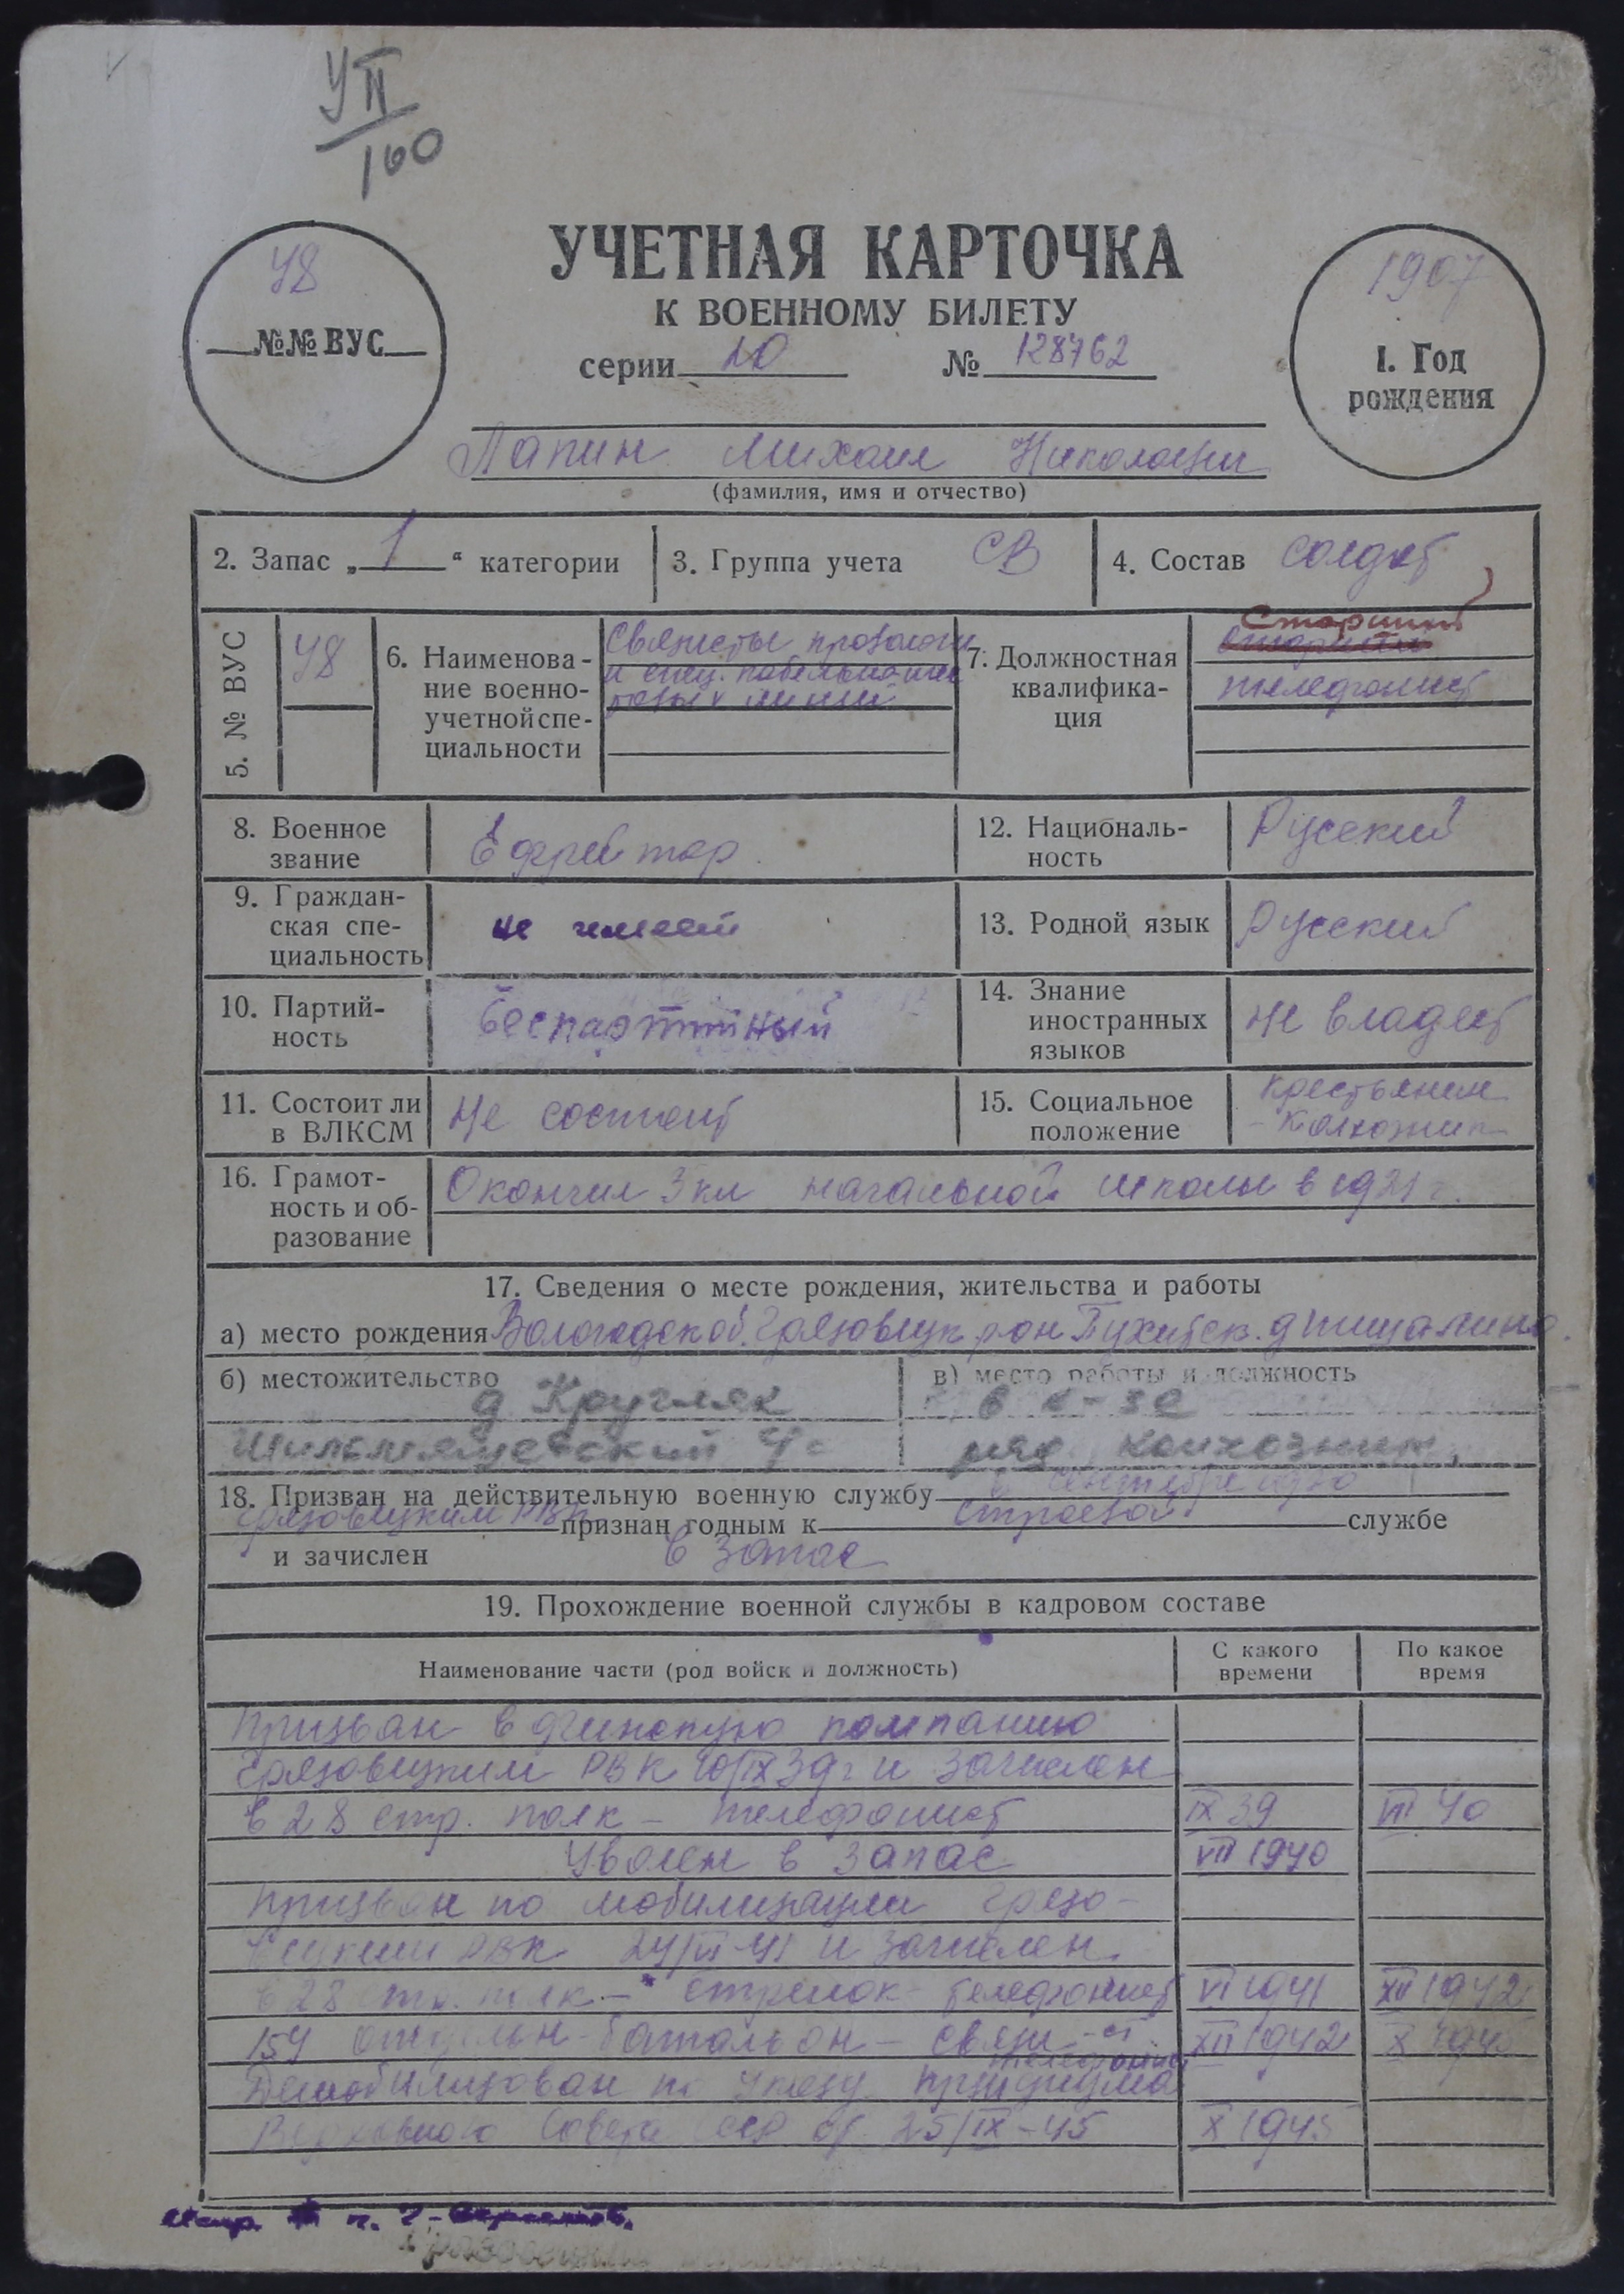 УП
100
УЧЕТНАЯ КАРТОЧКА
К ВОЕННОМУ БИЛЕТУ
48
№№ ВУС
серии 10 № 128762
1907
1. Год
рождения
Лапин Михаил Николаевич
(фамилия, имя и отчество)
2. Запас „1“ категории
3. Группа учета СВ
4. Состав солдат
5. № ВУС 48
6. Наименова-
ние военно-
учетной спе-
циальности
Связисты
и спец. кабельно-шес
товых линий
7. Должностная
квалифика-
ция
Старший
телефонист
8. Военное
звание
Ефрейтор
12. Националь-
ность
Русский
9. Граждан-
ская спе-
циальность
не имеет
13. Родной язык Русский
10. Партий-
ность
беспартийный
14. Знание
иностранных
языков
не владеет
11. Состоит ли
в ВЛКСМ
Не состоит
15. Социальное
положение
крестьянин
-Колхозник
16. Грамот-
ность и об-
разование
Окончил 3 кл начальной школы в 1921 г.
17. Сведения о месте рождения, жительства и работы
а) место рождения Вологодск об. Грязовецк рон
б) местожительство
д Кругляк
в) место работы и должность
в к-зе
ряд. колхозник,
18. Призван на действительную военную службу в сентябре
Грязовецким РВК признан годным к строевой службе
и зачислен в запас
19. Прохождение военной службы в кадровом составе
Наименование части (род войск и должность)
С какого
времени
По какое
время
Призван в финскую компанию
Грязовецким РВК 10/IX 39 г и зачислен
в 28 стр. полк – телефонист IX 39 VII 40
Уволен в запас VII 1940
Призван по мобилизации Грязо-
вецким РВК 24/VI 41 и зачислен
в 28 стр. полк – стрелок телефонист VI 1941 XII 1942
154 отдельн-батальон – связи – ст. XII 1942 X 1945
телефонист
Демобилизован по указу Президиума
Верховного Совета СССР от 25/IX-45 X 1945